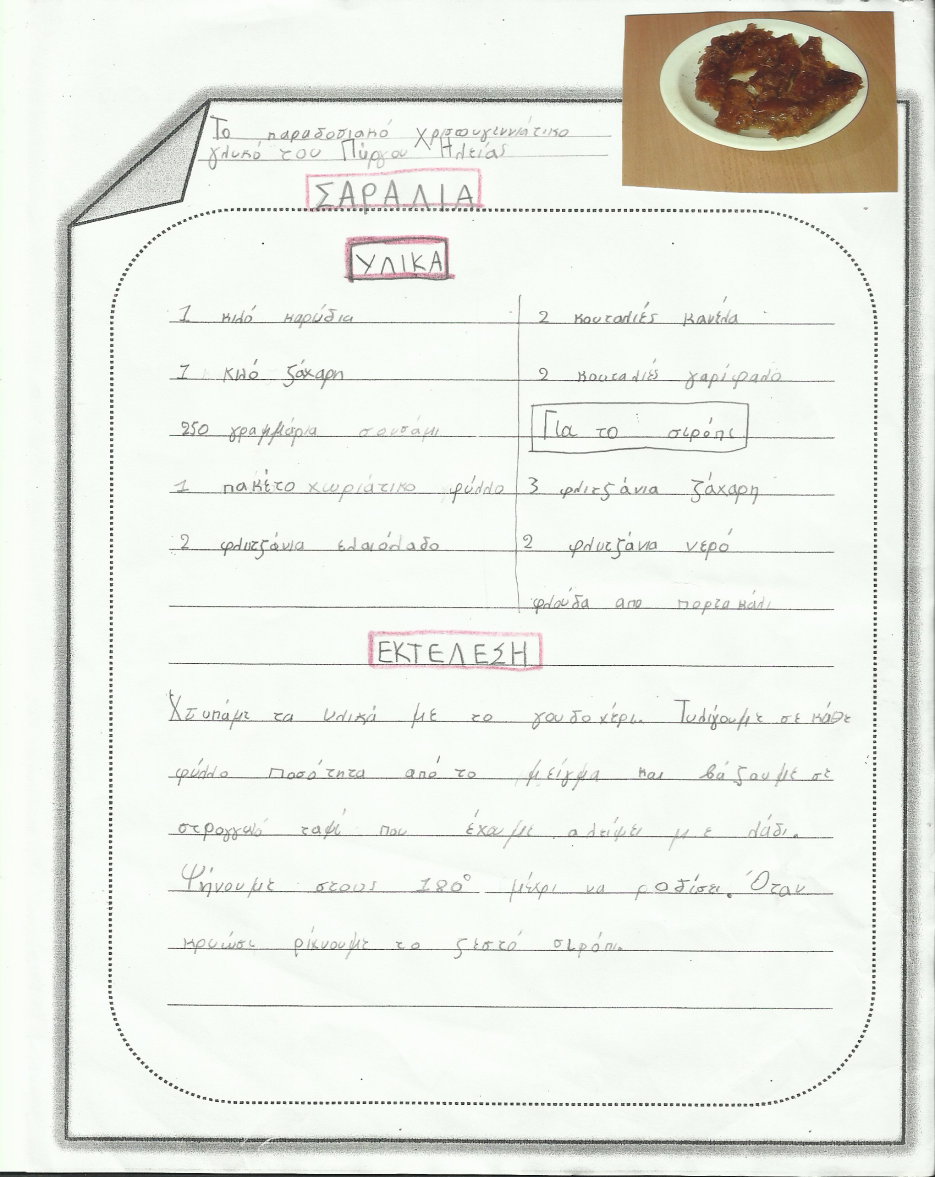 Το παραδοσιακό Χριστουγεννιάτικο
γλυκό του Πύργου Ηλείας
ΣΑΡΑΛΙΑ
ΥΛΙΚΑ
1 κιλό καρύδια
1 κιλό ζάχαρη
250 γραμμάρια σουσάμι
1 πακέτο χωριάτικο φύλλο
2 φλιτζάνια ελαιόλαδο
2 κουταλιές κανέλα
2 κουταλιές γαρίφαλο
Για το σιρόπι
3 φλιτζάνια ζάχαρη
2 φλυτζάνια νερό
φλούδα απο πορτοκάλι
ΕΚΤΕΛΕΣΗ
Χτυπάμε τα υλικά με το γουδοχέρι. Τυλίγουμε σε κάθε
φύλλο ποσότητα από το μείγμα και βάζουμε σε
στρογγυλό ταψί που έχουμε αλείψει με λάδι.
Ψήνουμε στους 180° μέχρι να ροδίσει. Όταν
κρυώσει ρίχνουμε το ζεστό σιρόπι.